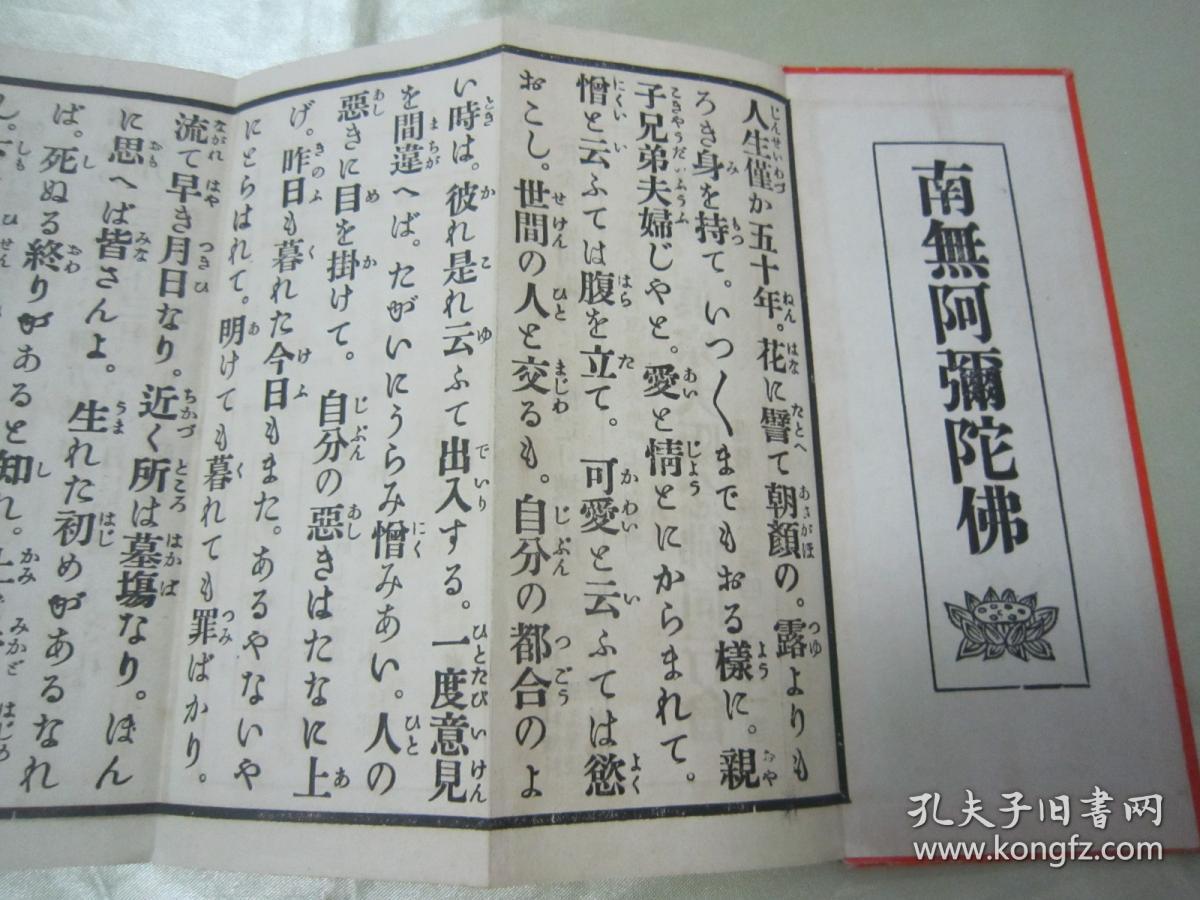 南無阿彌陀佛
人生僅か五十年。花に譬て朝顏の。露よりも
ろき身を持て。いつ〱までもおる樣に。親
子兄弟夫婦じやと。愛と情とにからまれて。
憎と云ふては腹を立て。可愛と云ふては慾
おこし。世間の人と交るも。自分の都合のよ
い時は。彼れ是れ云ふて出入する。一度意見
を間違へば。たがいにうらみ憎みあい。人の
惡きに目を掛けて。自分の惡きはたなに上
げ。昨日も暮れた今日もまた。あるやないや
にとらはれて。明けても暮れても罪ばかり。
流て早き月日なり。近く所は墓塲なり。ほん
に思へば皆さんよ。生れた初めがあるなれ
ば。死ぬる終りがあると知れ。
孔夫子旧书网
www.kongfz.com